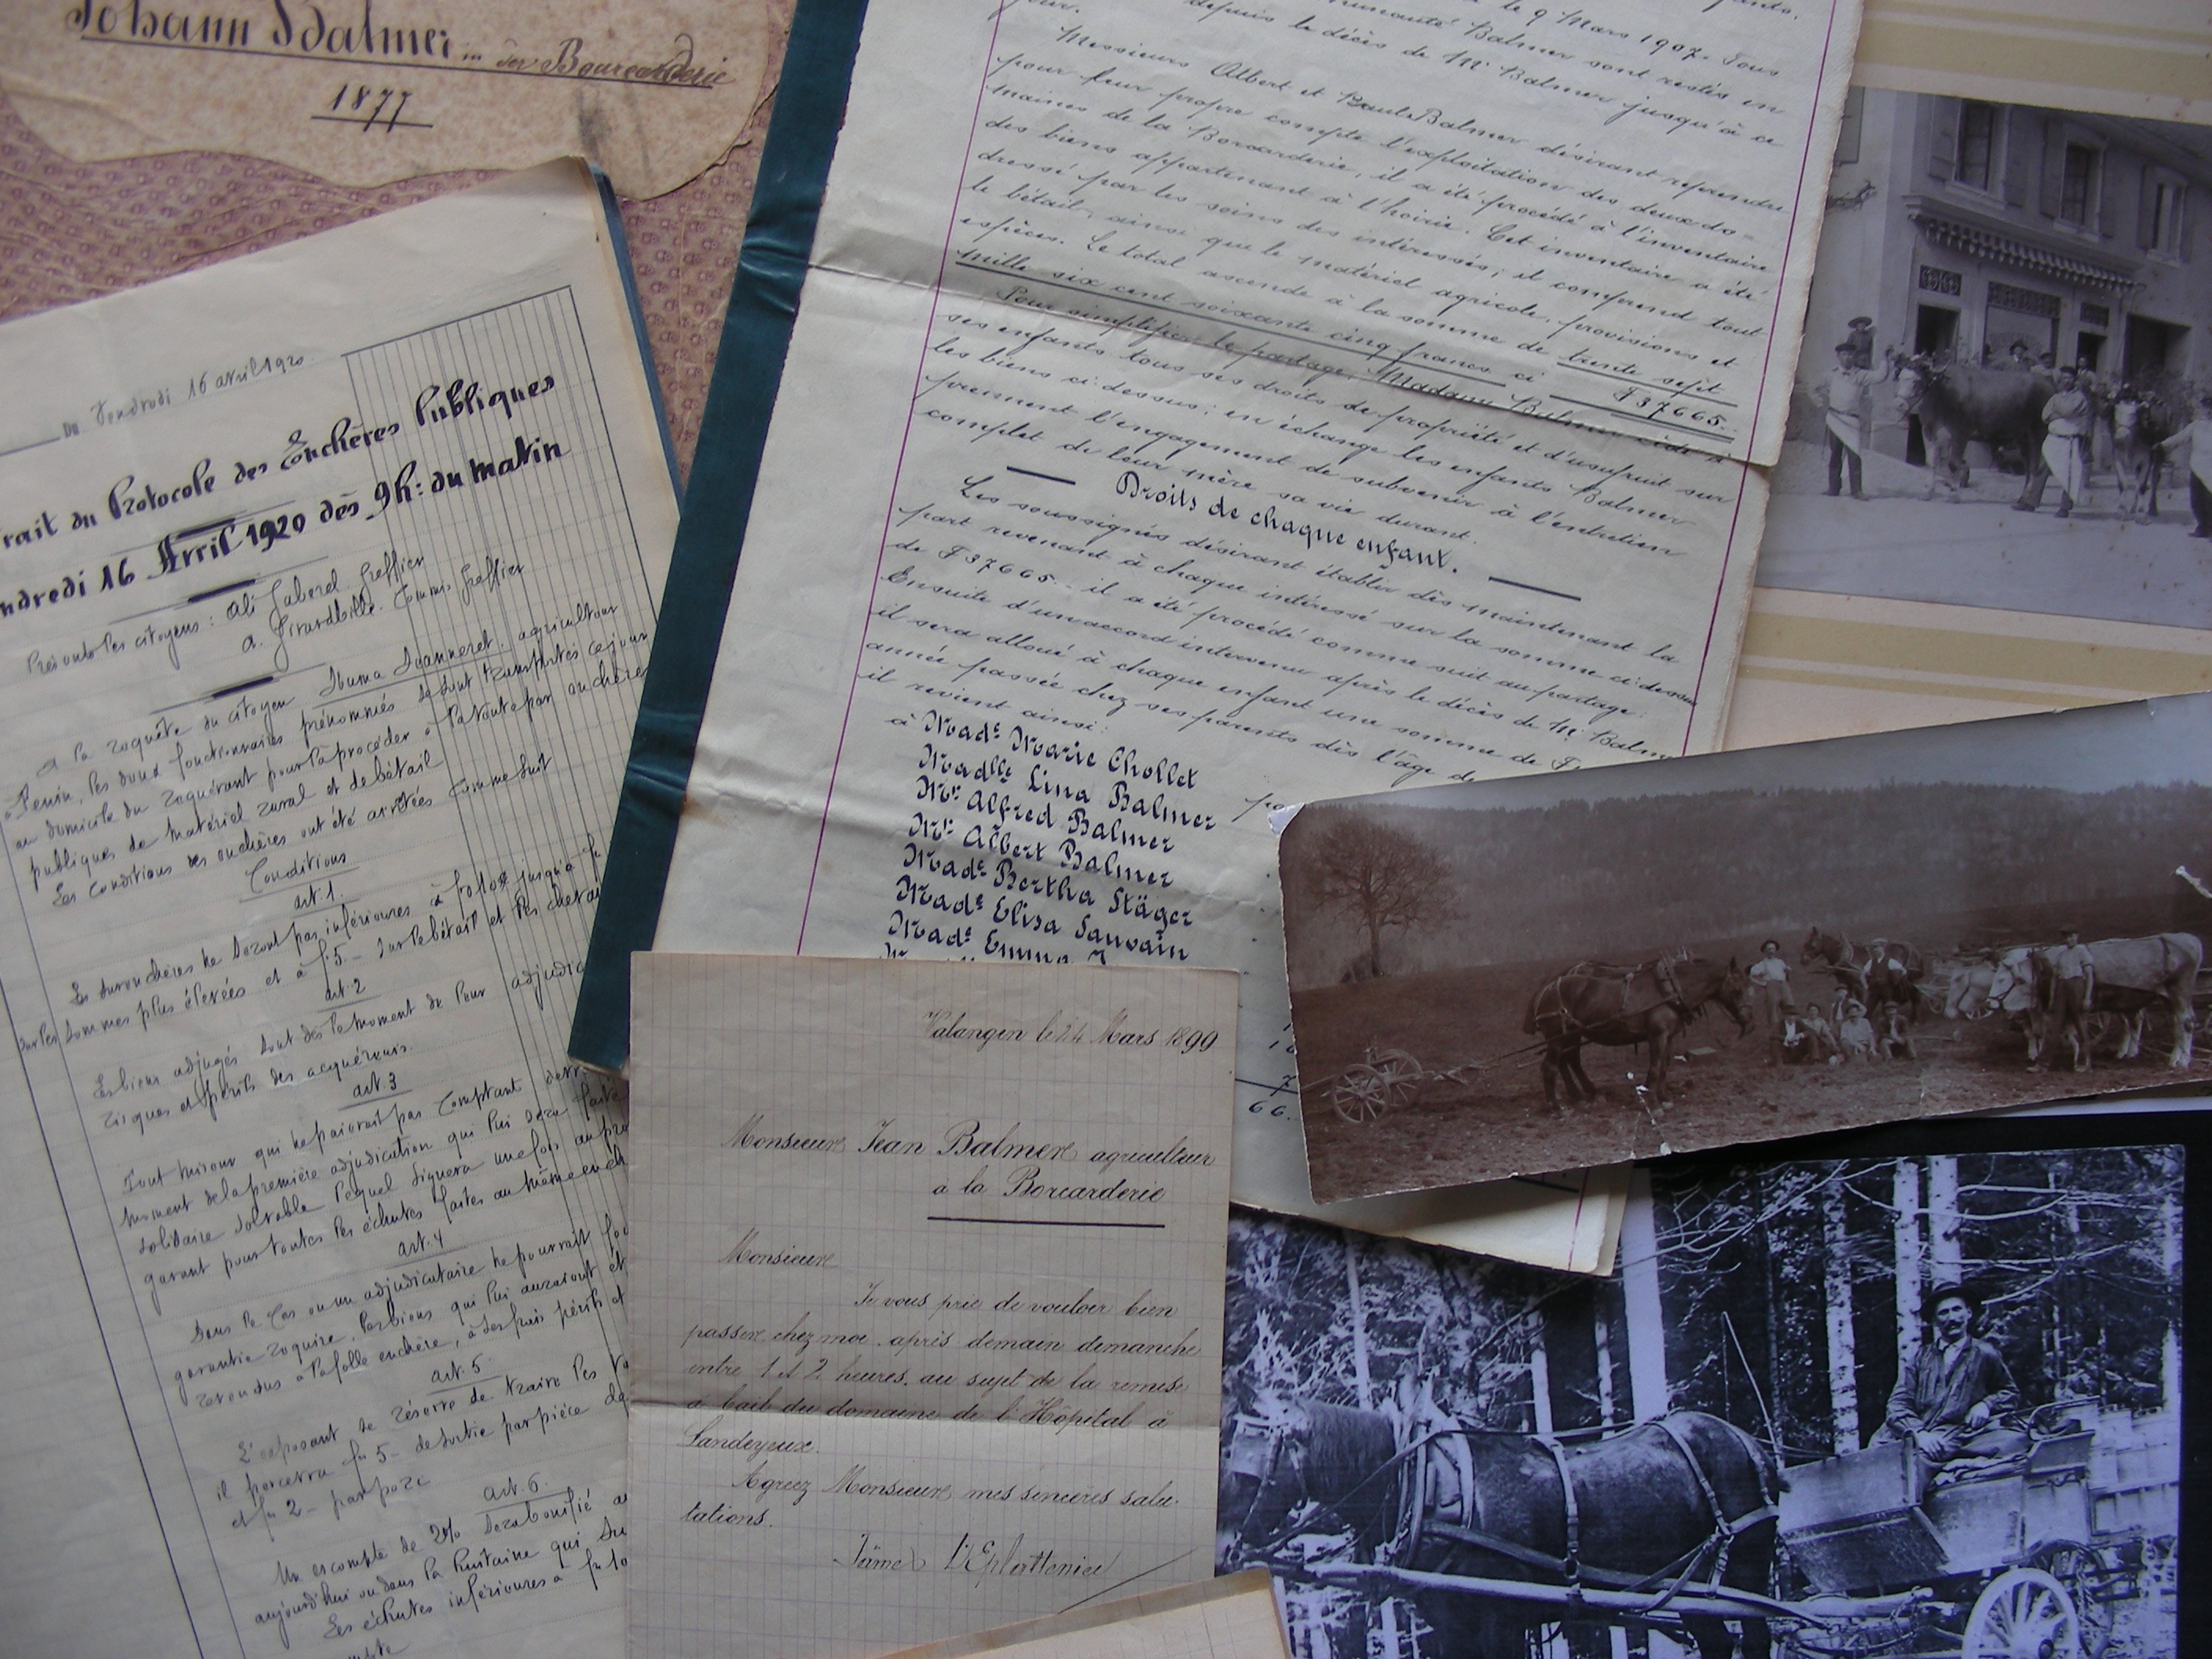 Johann Balmer in der Bourcarderie
1877
Du Vendredi 16 avril 1920
rait du Protocole des Enchères Publiques
ndredi 16 Avril 1920 dès 9h: du matin
Présents les citoyens: Ali Gaberel, Greffier
A. Girardbille. Commis Greffier
A la requête du citoyen Numa Jeanneret, agriculteur
Fenin, les deux fonctionnaires prénommés se sont transportés ce jour
au domicile du requérant pour là procéder à la vente par enchères
publiques de matériel rural et de bétail
Les conditions des enchères ont été arrêtées comme suit
Conditions
art. 1.
Les surenchères ne seront pas inférieures à
sur les sommes plus élevées et à f. 5 - sur le bétail et les
art. 2
Les biens adjugés sont dès le moment de leur adjudic
risques et périls des acquéreurs.
art. 3
Tout miseur qui ne paierait pas comptant
moment de la première adjudication qui lui sera faite
solidaire solvable lequel signera une fois
garant pour toutes les échutes faites au même
art. 4
Dans le cas où un adjudicataire ne pourrait
garantie requise, les biens qui lui auraient
revendus à la folle enchère, à ses frais périls et
art. 5
L'exposant se réserve de traire les
il percevra fr 5 - de sortie par pièce de
et fr 2 - par porc
art. 6.
Un escompte de 2% sera bonifié
aujourd'hui ou dans la huitaine qui
Les échutes inférieures à fr 10
le 9 Mars 1907. Tous
Balmer sont restés en
depuis le décès de Mr Balmer jusqu'à ce
jour.
Messieurs Albert et Paul Balmer désirant reprendre
pour leur propre compte l'exploitation des deux do-
maines de la Borcarderie, il a été procédé à l'inventaire
des biens appartenant à l'hoirie. Cet inventaire a été
dressé par les soins des intéressés; il comprend tout
le bétail, ainsi que le matériel agricole, provisions et
espèces. Le total ascende à la somme de trente sept
mille six cent soixante cinq francs ci F 37665.-
Pour simplifier le partage, Madame Balmer cède à
ses enfants tous ses droits de propriété et d'usufruit sur
les biens ci-dessus; en échange les enfants Balmer
prennent l'engagement de subvenir à l'entretien
complet de leur mère sa vie durant.
Droits de chaque enfant.
Les soussignés désirant établir dès maintenant la
part revenant à chaque intéressé sur la somme ci-dessus
de F 37665.- il a été procédé comme suit au partage:
Ensuite d'un accord intervenu après le décès de Mr Balmer
il sera alloué à chaque enfant une somme de
année passée chez ses parents dès l'âge de
il revient ainsi:
à Made Marie Chollet
Madlle Lina Balmer
Mr Alfred Balmer
Mr Albert Balmer
Made Bertha Stäger
Made Elisa Sauvain
Made Emma
66.
Valangin le 24 Mars 1899
Monsieur Jean Balmer agriculteur
à la Borcarderie
Monsieur
Je vous prie de vouloir bien
passer chez moi après demain demanche
entre 1 et 2 heures, au sujet de la remise
à bail du domaine de l'Hôpital à
Landeyeux.
Agréez Monsieur mes sincères salu-
tations.
L'Eplattenier